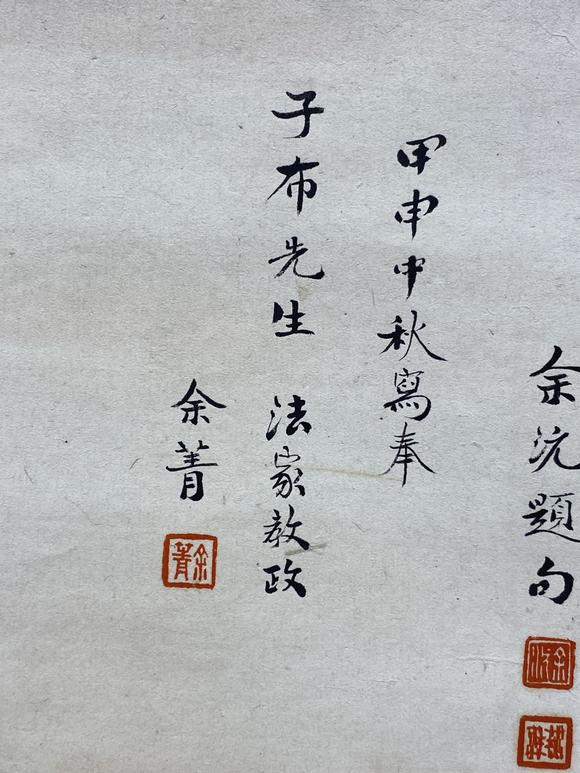 余沅題句
甲申中秋寫奉
子布先生 法家教政
余菁
余菁